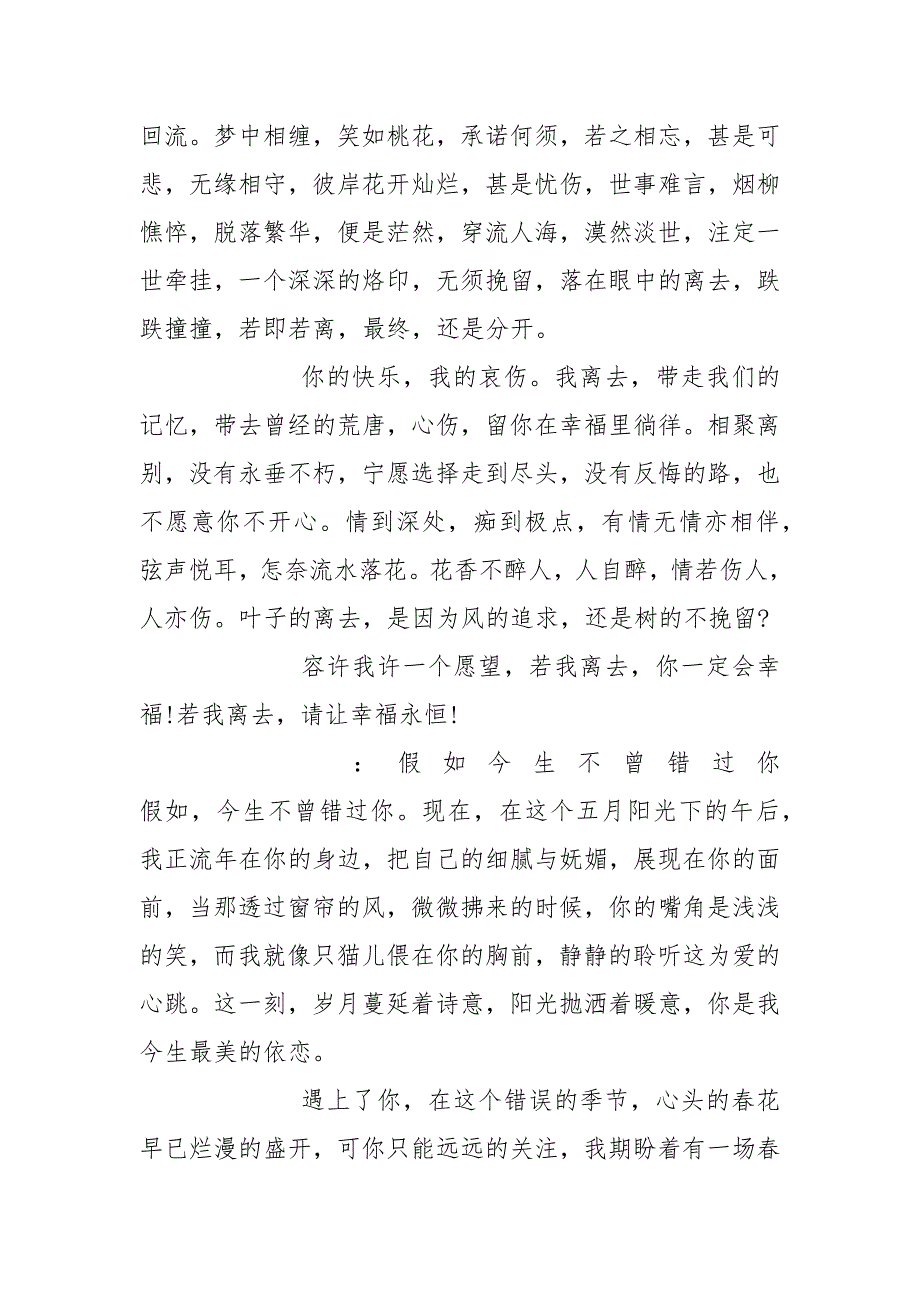 回流。梦中相缠，笑如桃花，承诺何须，若之相忘，甚是可
悲，无缘相守，彼岸花开灿烂，甚是忧伤，世事难言，烟柳
憔悴，脱落繁华，便是茫然，穿流人海，漠然淡世，注定一
世牵挂，一个深深的烙印，无须挽留，落在眼中的离去，跌
跌撞撞，若即若离，最终，还是分开。
你的快乐，我的哀伤。我离去，带走我们的
记忆，带去曾经的荒唐，心伤，留你在幸福里徜徉。相聚离
别，没有永垂不朽，宁愿选择走到尽头，没有反悔的路，也
不愿意你不开心。情到深处，痴到极点，有情无情亦相伴，
弦声悦耳，怎奈流水落花。花香不醉人，人自醉，情若伤人，
人亦伤。叶子的离去，是因为风的追求，还是树的不挽留?
容许我许一个愿望，若我离去，你一定会幸
福!若我离去，请让幸福永恒!
：假如今生不曾错过你
假如，今生不曾错过你。现在，在这个五月阳光下的午后，
我正流年在你的身边，把自己的细腻与妩媚，展现在你的面
前，当那透过窗帘的风，微微拂来的时候，你的嘴角是浅浅
的笑，而我就像只猫儿偎在你的胸前，静静的聆听这为爱的
心跳。这一刻，岁月蔓延着诗意，阳光抛洒着暖意，你是我
今生最美的依恋。
遇上了你，在这个错误的季节，心头的春花
早已烂漫的盛开，可你只能远远的关注，我期盼着有一场春